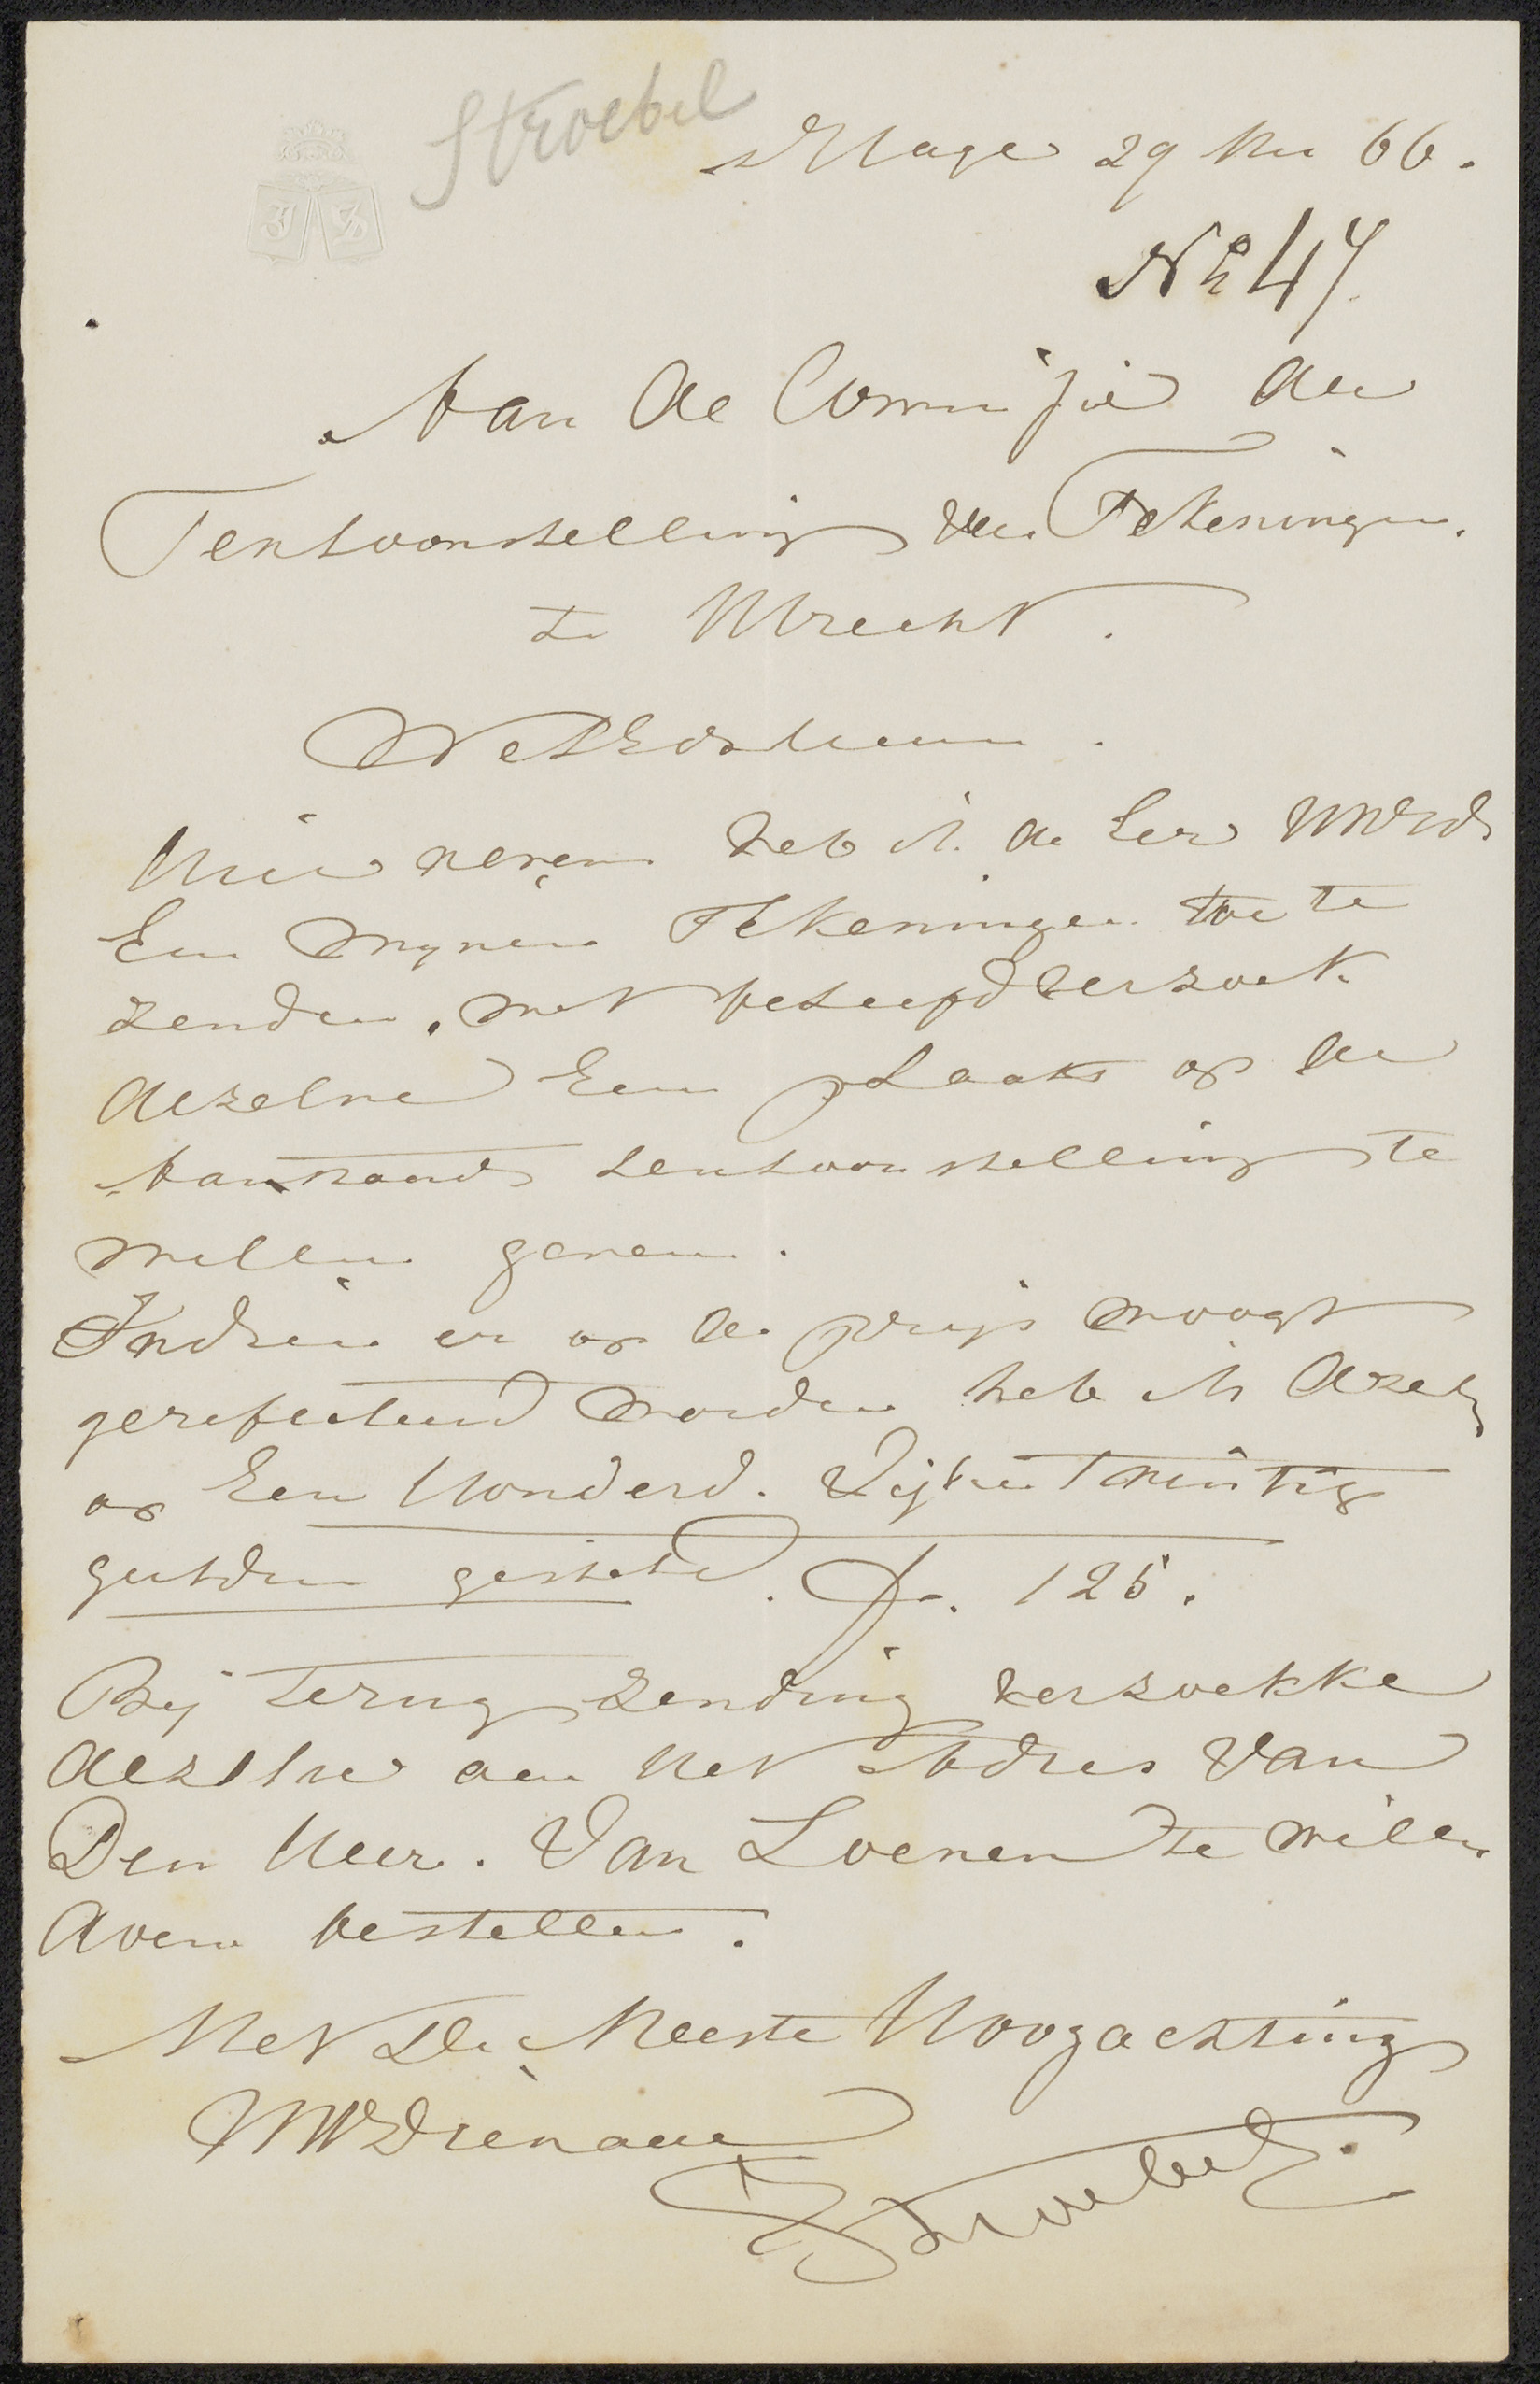 Stroebel
JS
s'Hage 29 Mei 66.
No 47.
Aan de Commissie der
Tentoonstelling van Tekeningen.
te Utrecht.
WelEdHeeren.
Hier nevens heb ik de Eer UWEd
Een mijner Tekeningen toe te
zenden, met beleefd verzoek
dezelve Een plaats op de
Aanstaande tentoonstelling te
willen geven.
Indien er op de prijs moogt
gereflecteerd worden heb ik dezelve
op Een Honderd. Vijf en Twintig
gulden gesteld. f. 125.
Bij terug zending verzoekke
dezelve aan het Adres van
Den Heer. Van Loenen te willen
doen bestellen.
Met De Meeste Hoogachting
UWEDienaar
J Stroebel.